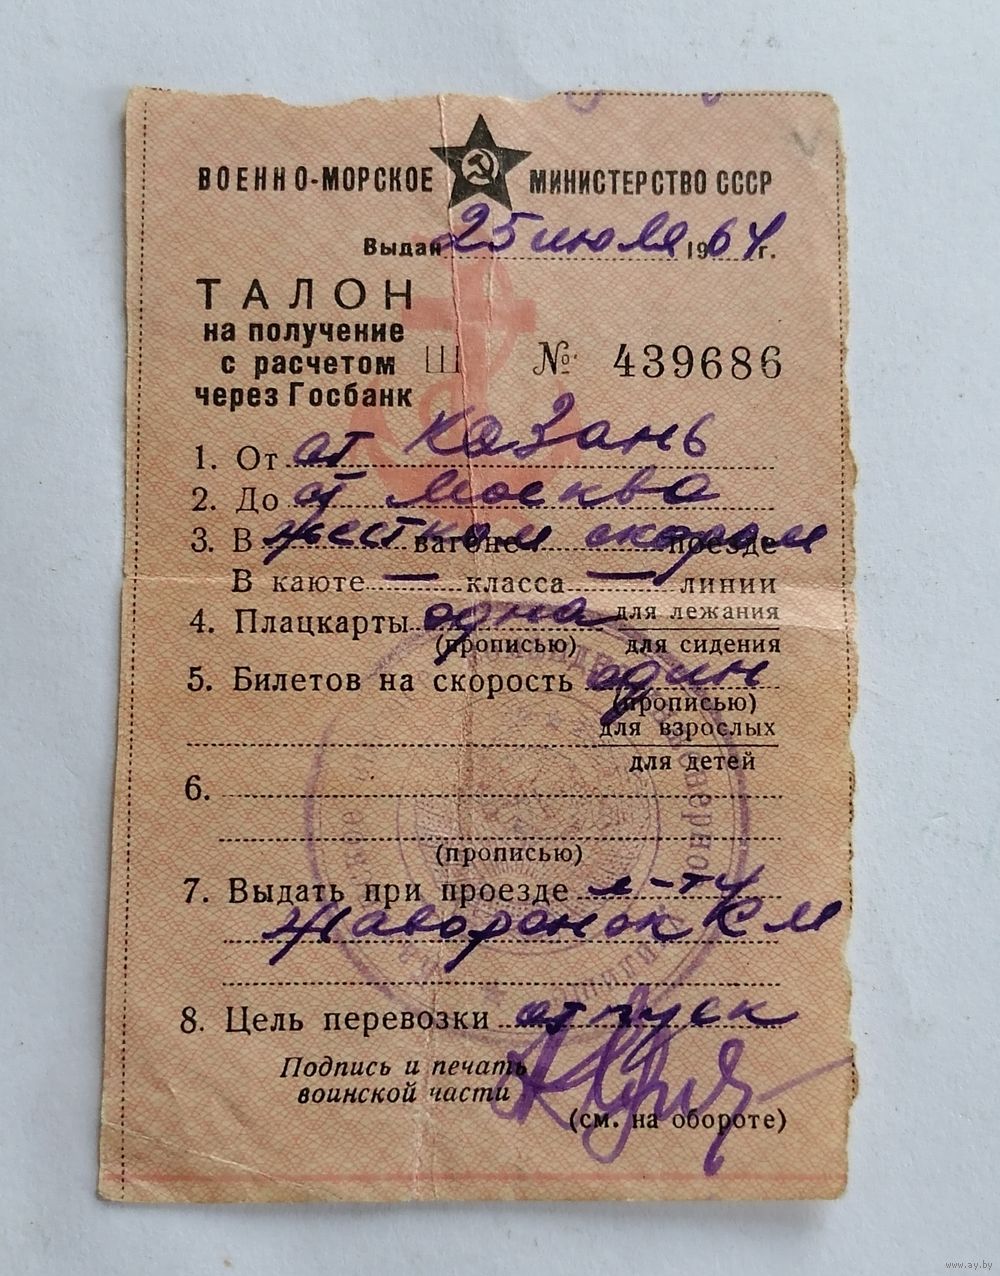 ВОЕННО-МОРСКОЕ МИНИСТЕРСТВО СССР
Выдан 25 июля 1964 г.
ТАЛОН
на получение
с расчетом
через Госбанк
Ш № 439686
1. От ст Казань
2. До ст Москва
3. В жестком вагоне скором поезде
В каюте — класса — линии
4. Плацкарты одна для лежания
(прописью) для сидения
5. Билетов на скорость один
(прописью)
для взрослых
для детей
6.
(прописью)
7. Выдать при проезде л-ту
Жаворонок К М
8. Цель перевозки отпуск
Подпись и печать
воинской части
(см. на обороте)
www.ay.by